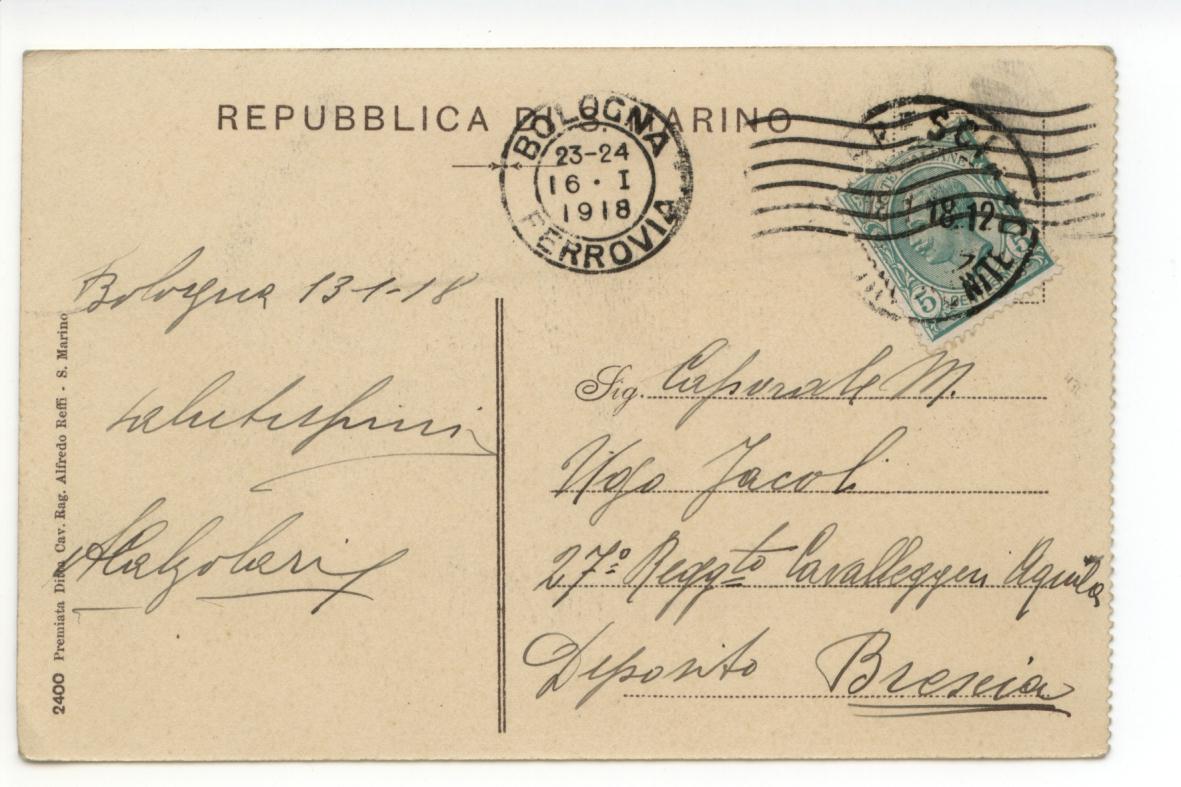 REPUBBLICA DI S. MARINO
BOLOGNA
23-24
16·I
1918
FERROVIA
18.12
5
5
Bologna 13-1-18
salutissimi
ACalzolari
Sig. Caporale M.
Ugo Jacoli
27º Regg.to Cavalleggeri Aquila
Deposito Brescia
2400 Premiata Ditta Cav. Rag. Alfredo Reffi - S. Marino